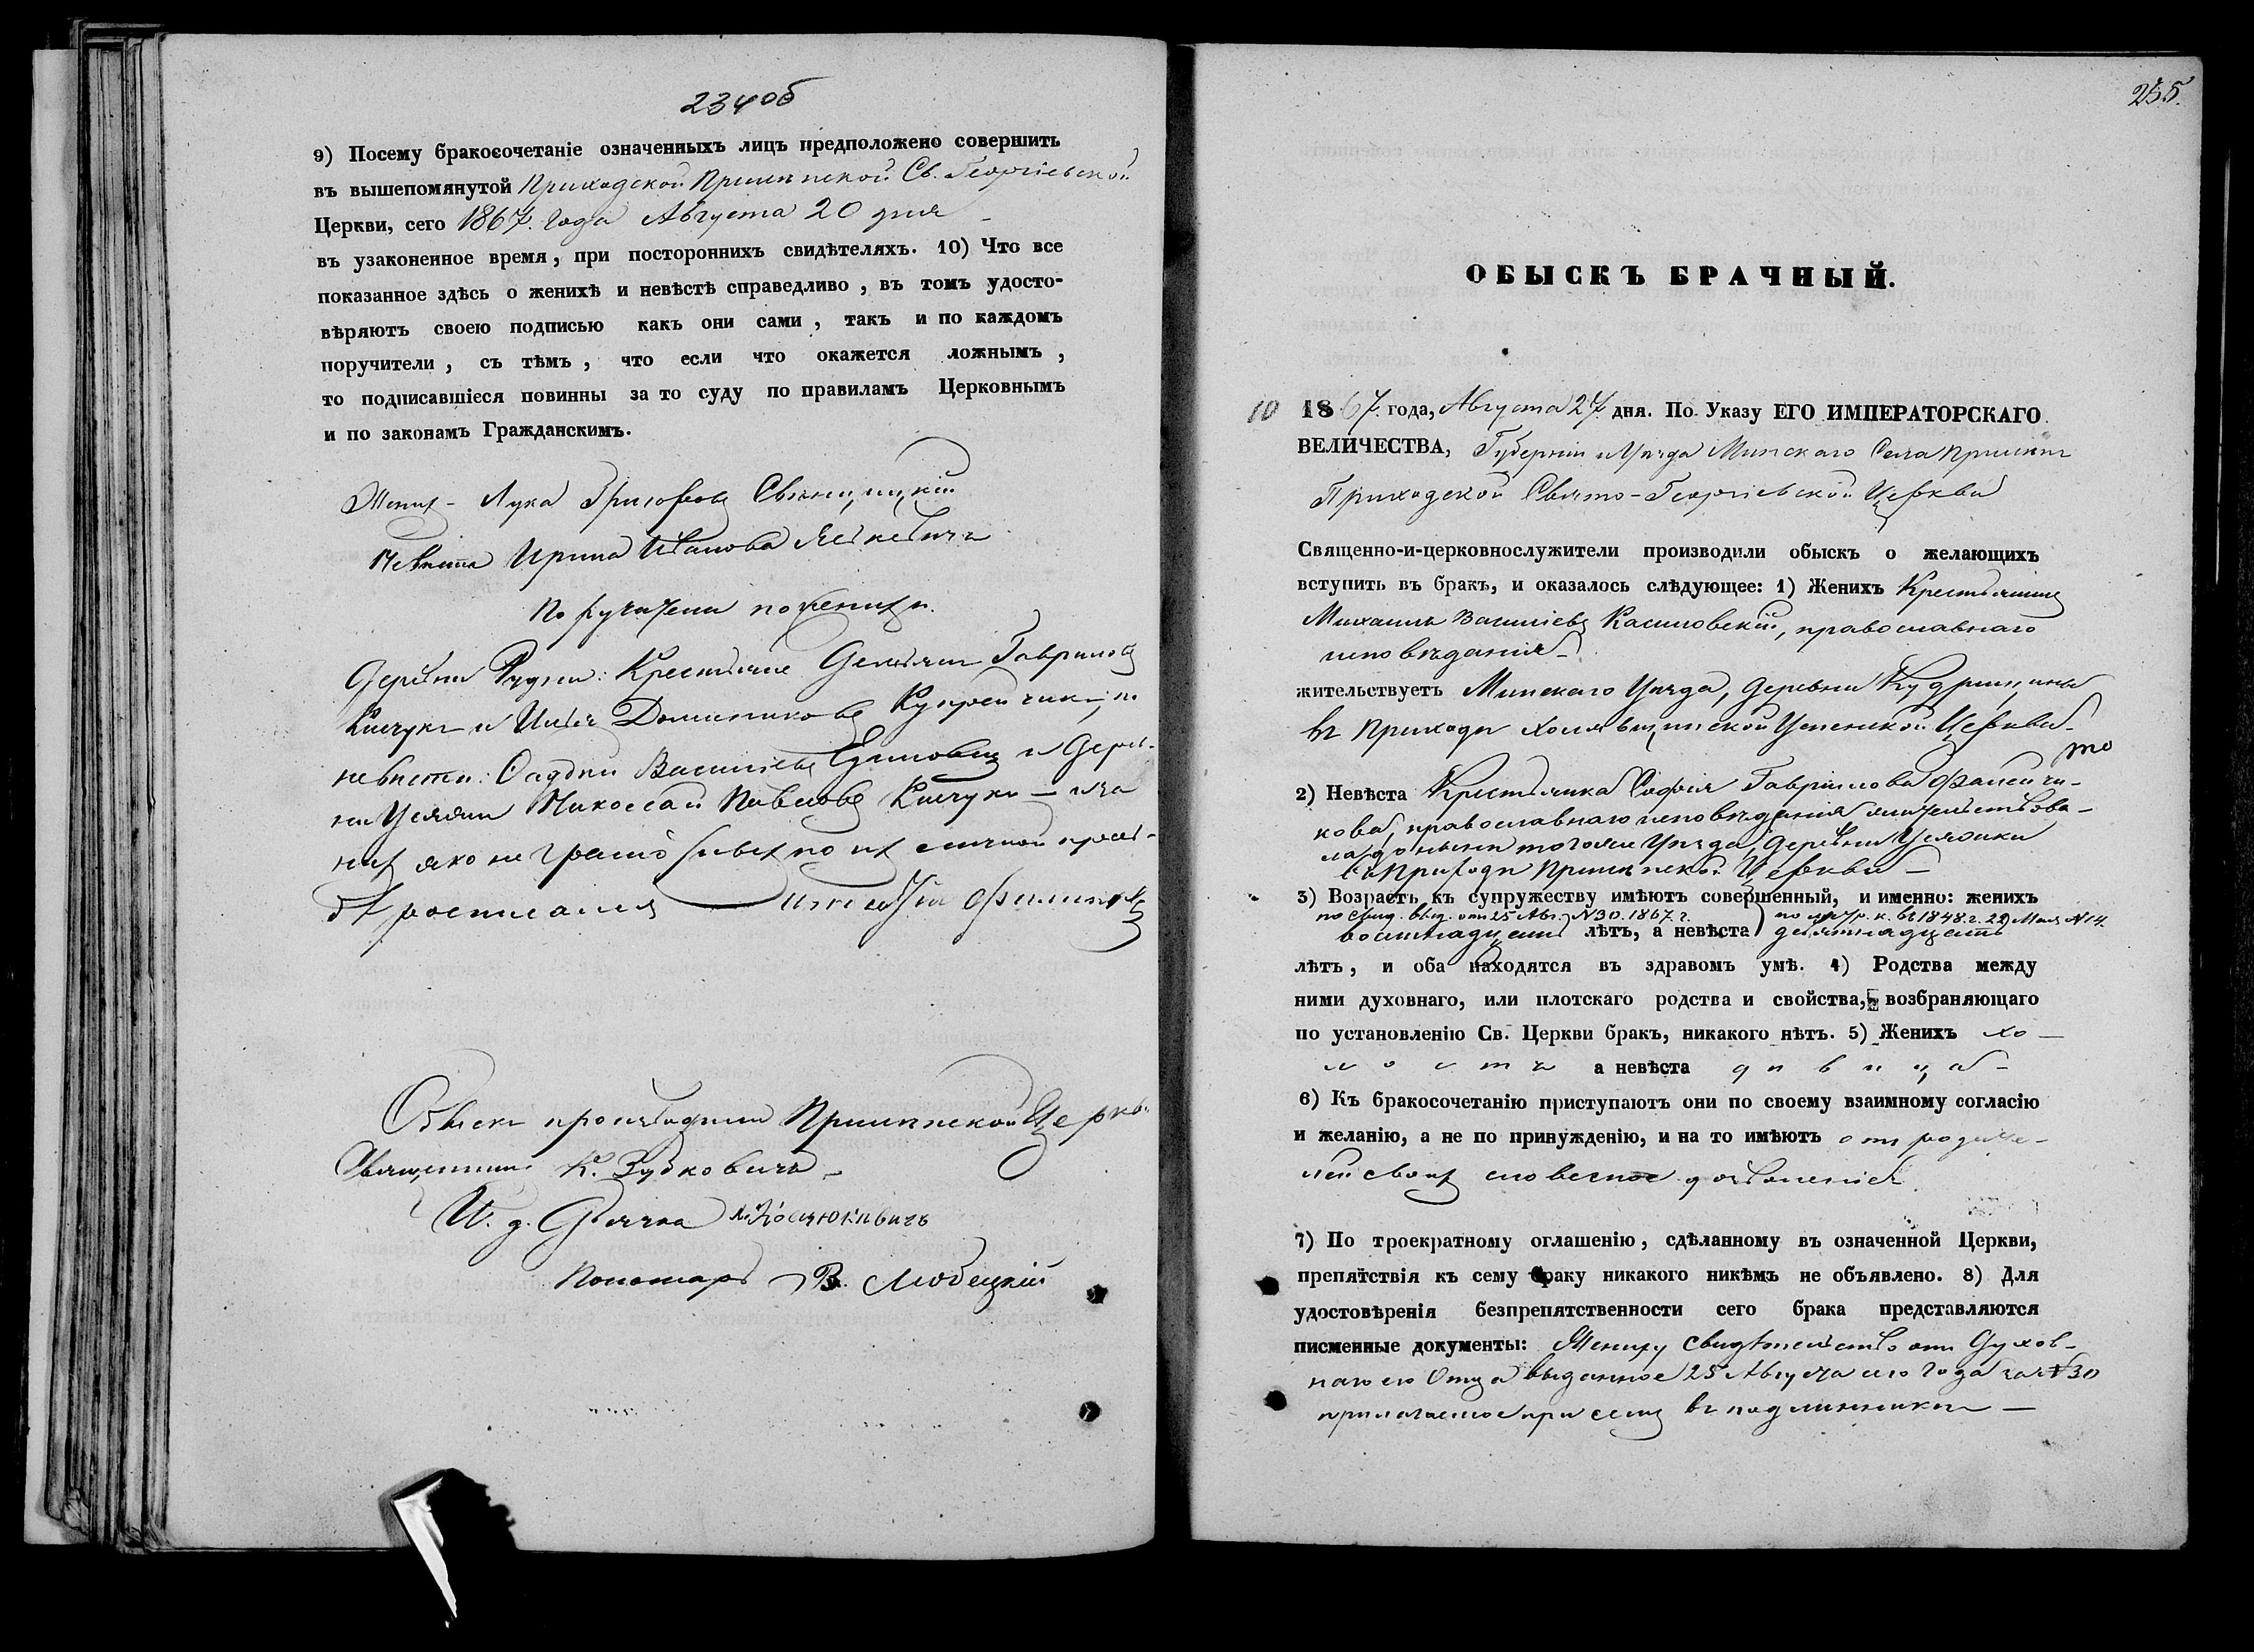 234 об
9) Посему бракосочетаніе означенныхъ лицъ предположено совершить
въ вышепомянутой Приходской Св. Георгіевской
Церкви, сего 1867. года Августа 20 дня
въ узаконенное время, при постороннихъ свидѣтеляхъ. 10) Что все
показанное здѣсь о женихѣ и невѣстѣ справедливо, въ томъ удосто-
вѣряютъ своею подписью какъ они сами, такъ и по каждомъ
поручители, съ тѣмъ, что если что окажется ложнымъ,
то подписавшіеся повинны за то суду по правиламъ Церковнымъ
и по законамъ Гражданскимъ.
Жених - Лука
Невѣста Ирина Иванова
Поручители по женихѣ
деревни Крестьяне Гаврилов
и Илья Доминиковъ
невѣсти: Василіевъ и дерев-
ни Усяжи Николай Павловъ — и за
них яко неграмотных по их личной прозь-
бѣ росписался
Обыскъ производили Церкви
Священникъ К. Зубковичъ
И. д. Дьячка
Пономарь В. Любецкій
255.
ОБЫСКЪ БРАЧНЫЙ.
10 1867. года, Августа 27. дня. По Указу ЕГО ИМПЕРАТОРСКАГО
ВЕЛИЧЕСТВА, Губерніи и Уѣзда Минскаго Села
Приходской Свято-Георгіевской Церкви
Священно-и-церковнослужители производили обыскъ о желающихъ
вступить въ бракъ, и оказалось слѣдующее: 1) Женихъ Крестьянинъ
Михаилъ Василіевъ Касиловскій, православнаго
исповѣданія
жительствуетъ Минскаго Уѣзда, деревни Кудрищина
въ Приходѣ Успенской Церкви
2) Невѣста Крестьянка Софія Гаврилова
кова, православнаго исповѣданія жительствова-
ла донынѣ того же Уѣзда, деревни Усяжи
въ Приходѣ Церкви
3) Возрастъ къ супружеству имѣютъ совершенный, и именно: женихъ
по свид. выд. отъ 25 Авг. N 30. 1867. г. по к. въ 1848. г. 22 Мая N 14.
восемнадцать лѣтъ, а невѣста девятнадцать
лѣтъ, и оба находятся въ здравомъ умѣ. 4) Родства между
ними духовнаго, или плотскаго родства и свойства, возбраняющаго
по установленію Св. Церкви бракъ, никакого нѣтъ. 5) Женихъ хо-
лостъ а невѣста дѣвица
6) Къ бракосочетанію приступаютъ они по своему взаимному согласію
и желанію, а не по принужденію, и на то имѣютъ отъ родите-
лей своих словесное дозволеніе
7) По троекратному оглашенію, сдѣланному въ означенной Церкви,
препятствія къ сему браку никакого никѣмъ не объявлено. 8) Для
удостовѣренія безпрепятственности сего брака представляются
писменные документы: Жениху свидѣтельство отъ Духов-
наго его Отца выданное 25 Августа сего года за N 30
прилагаемое при семъ въ подлинникѣ —